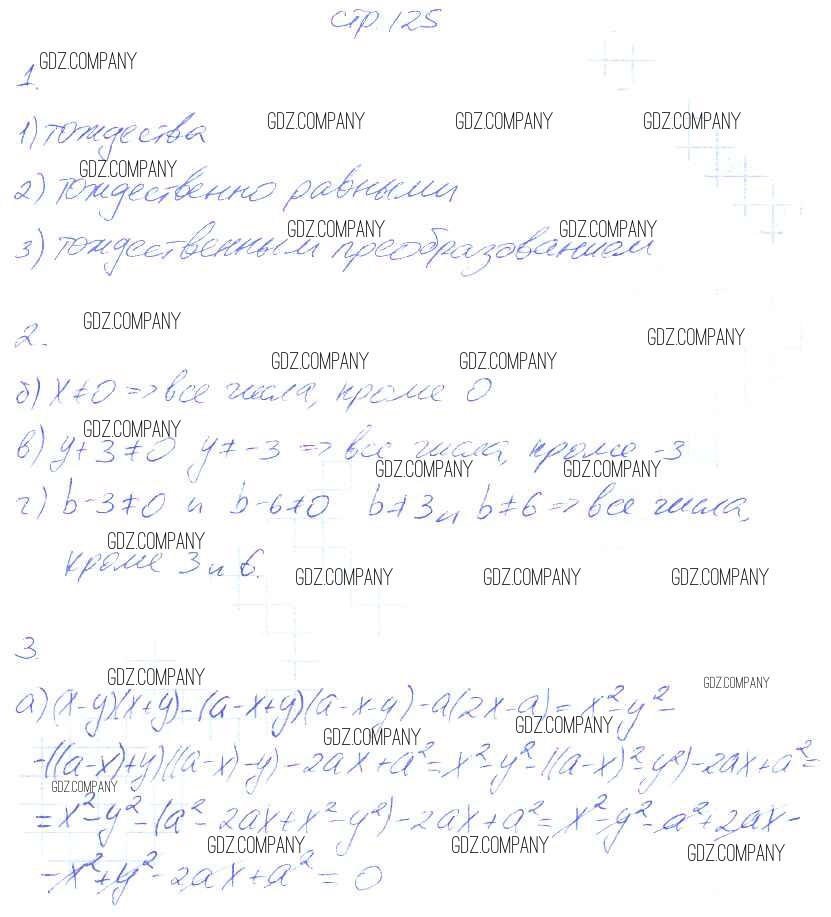 стр 125
GDZ.COMPANY
1.
GDZ.COMPANY GDZ.COMPANY GDZ.COMPANY
1) тождества
GDZ.COMPANY
2) тождественно равными
GDZ.COMPANY GDZ.COMPANY
3) тождественным преобразованием
GDZ.COMPANY GDZ.COMPANY
2.
GDZ.COMPANY GDZ.COMPANY
б) x≠0 => все числа, кроме 0
GDZ.COMPANY
в) y+3≠0 y≠-3 => все числа, кроме -3
GDZ.COMPANY GDZ.COMPANY
г) b-3≠0 и b-6≠0 b≠3 и b≠6 => все числа,
GDZ.COMPANY
кроме 3 и 6.
GDZ.COMPANY GDZ.COMPANY GDZ.COMPANY
3.
GDZ.COMPANY GDZ.COMPANY
а) (x-y)(x+y)-(a-x+y)(a-x-y)-a(2x-a)= x²-y²-
GDZ.COMPANY GDZ.COMPANY
-((a-x)+y)((a-x)-y)-2ax+a²=x²-y²-((a-x)²-y²)-2ax+a²=
GDZ.COMPANY
=x²-y²-(a²-2ax+x²-y²)-2ax+a²=x²-y²-a²+2ax-
GDZ.COMPANY GDZ.COMPANY GDZ.COMPANY
-x²+y²-2ax+a²=0